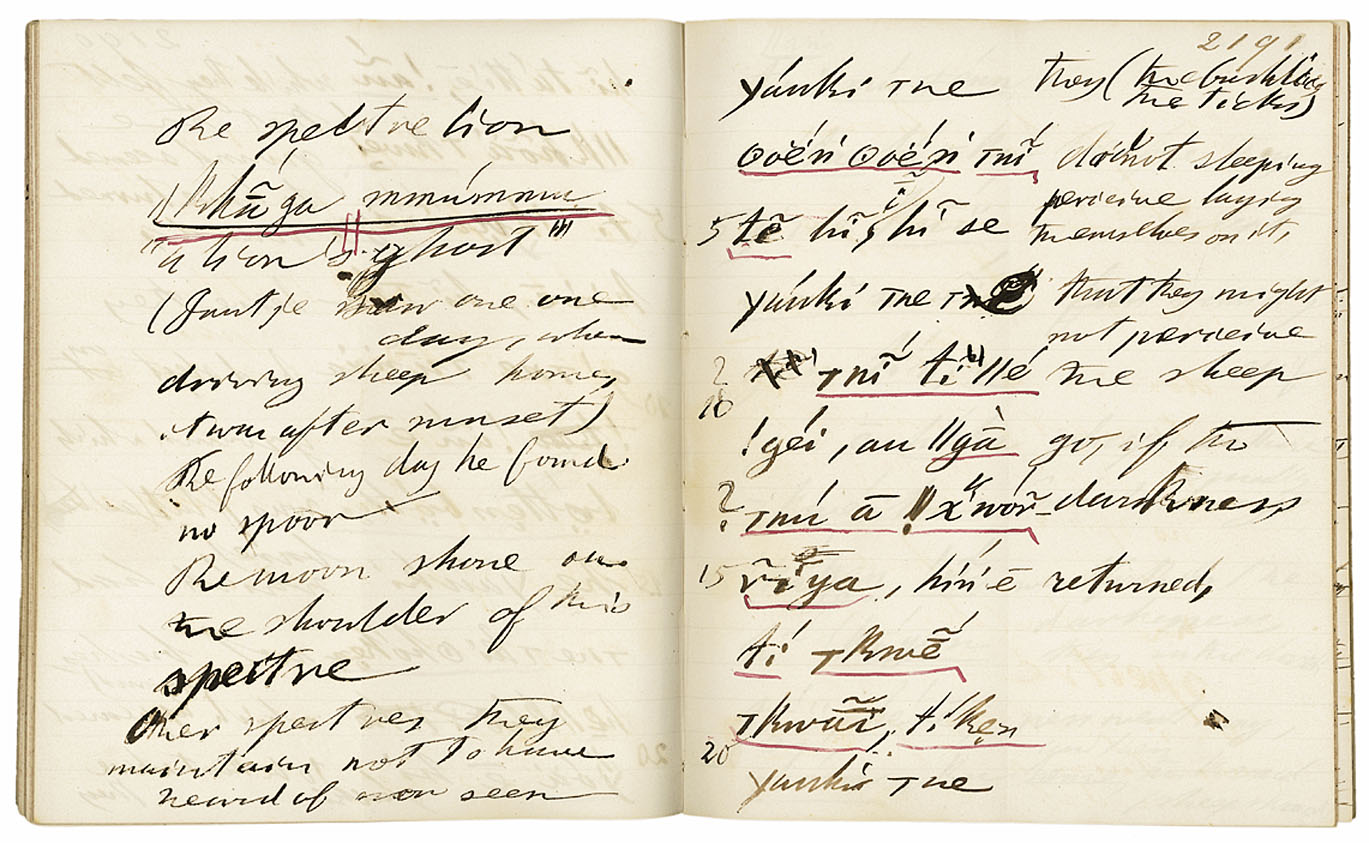 The spectre lion
Khā́ga mmúmmu
"a lion's ghost"
(Jantje saw one one
day, when
driving sheep home,
it was after sunset)
The following day he found
no spoor
The moon shone on
the shoulder of this
spectre
Other spectres they
maintain not to have
heard of or seen
2191
yáuki ⊤ne they (the bushlice
the ticks)
ʘoéni ʘoéni ⊤nĩ́ do not sleeping
perceive laying
5 tẽ hĩ, hĩ se themselves on it,
yáuki ⊤ne that they might
not perceive
? ⊤nĩ́ tí ǁé the sleep
10
!géi, au ǁgā̀ go, if the
? ⊤nú ā darkness
15 , híń ē returned,
tí ⊤kuẽ́
⊤kwãĩ́, tí ken
20
yauki ⊤ne